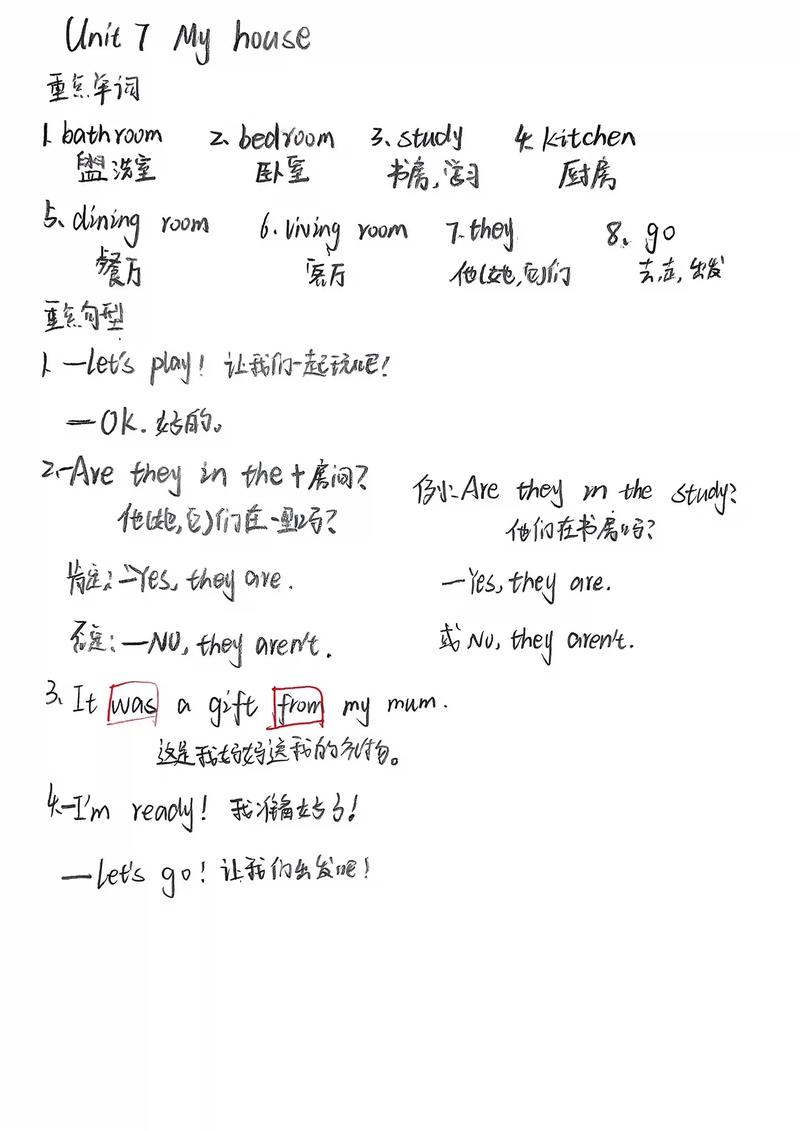 Unit 7 My house
重点单词
1. bathroom 2. bedroom 3. study 4. kitchen
盥洗室 卧室 书房,学习 厨房
5. dining room 6. living room 7. they 8. go
餐厅 客厅 他(她,它)们 去,走,出发
重点句型
1. —Let's play! 让我们一起玩吧!
—OK. 好的。
2. —Are they in the + 房间?
他(她,它)们在…里吗?
例: Are they in the study?
他们在书房吗?
肯定: —Yes, they are.
—Yes, they are.
否定: —No, they aren't.
或 No, they aren't.
3. It was a gift from my mum.
这是我妈妈送我的礼物。
4. —I'm ready! 我准备好了!
—Let's go! 让我们出发吧!